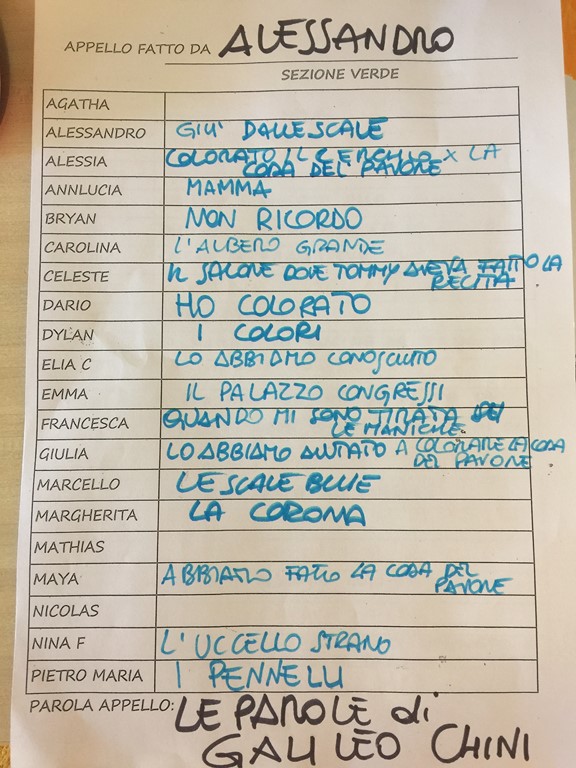 APPELLO FATTO DA ALESSANDRO
SEZIONE VERDE
AGATHA
ALESSANDRO GIU' DALLE SCALE
ALESSIA COLORATO IL CERCHIO X LA
CODA DEL PAVONE
ANNLUCIA MAMMA
BRYAN NON RICORDO
CAROLINA L'ALBERO GRANDE
CELESTE IL SALONE DOVE TOMMY AVEVA FATTO LA
RECITA
DARIO HO COLORATO
DYLAN I COLORI
ELIA C LO ABBIAMO CONOSCIUTO
EMMA IL PALAZZO CONGRESSI
FRANCESCA QUANDO MI SONO TIRATA SU
LE MANICHE
GIULIA LO ABBIAMO AIUTATO A COLORARE LA CODA
DEL PAVONE
MARCELLO LE SCALE BLUE
MARGHERITA LA CORONA
MATHIAS
MAYA ABBIAMO FATTO LA CODA DEL
PAVONE
NICOLAS
NINA F L'UCCELLO STRANO
PIETRO MARIA I PENNELLI
PAROLA APPELLO: LE PAROLE di
GALILEO CHINI